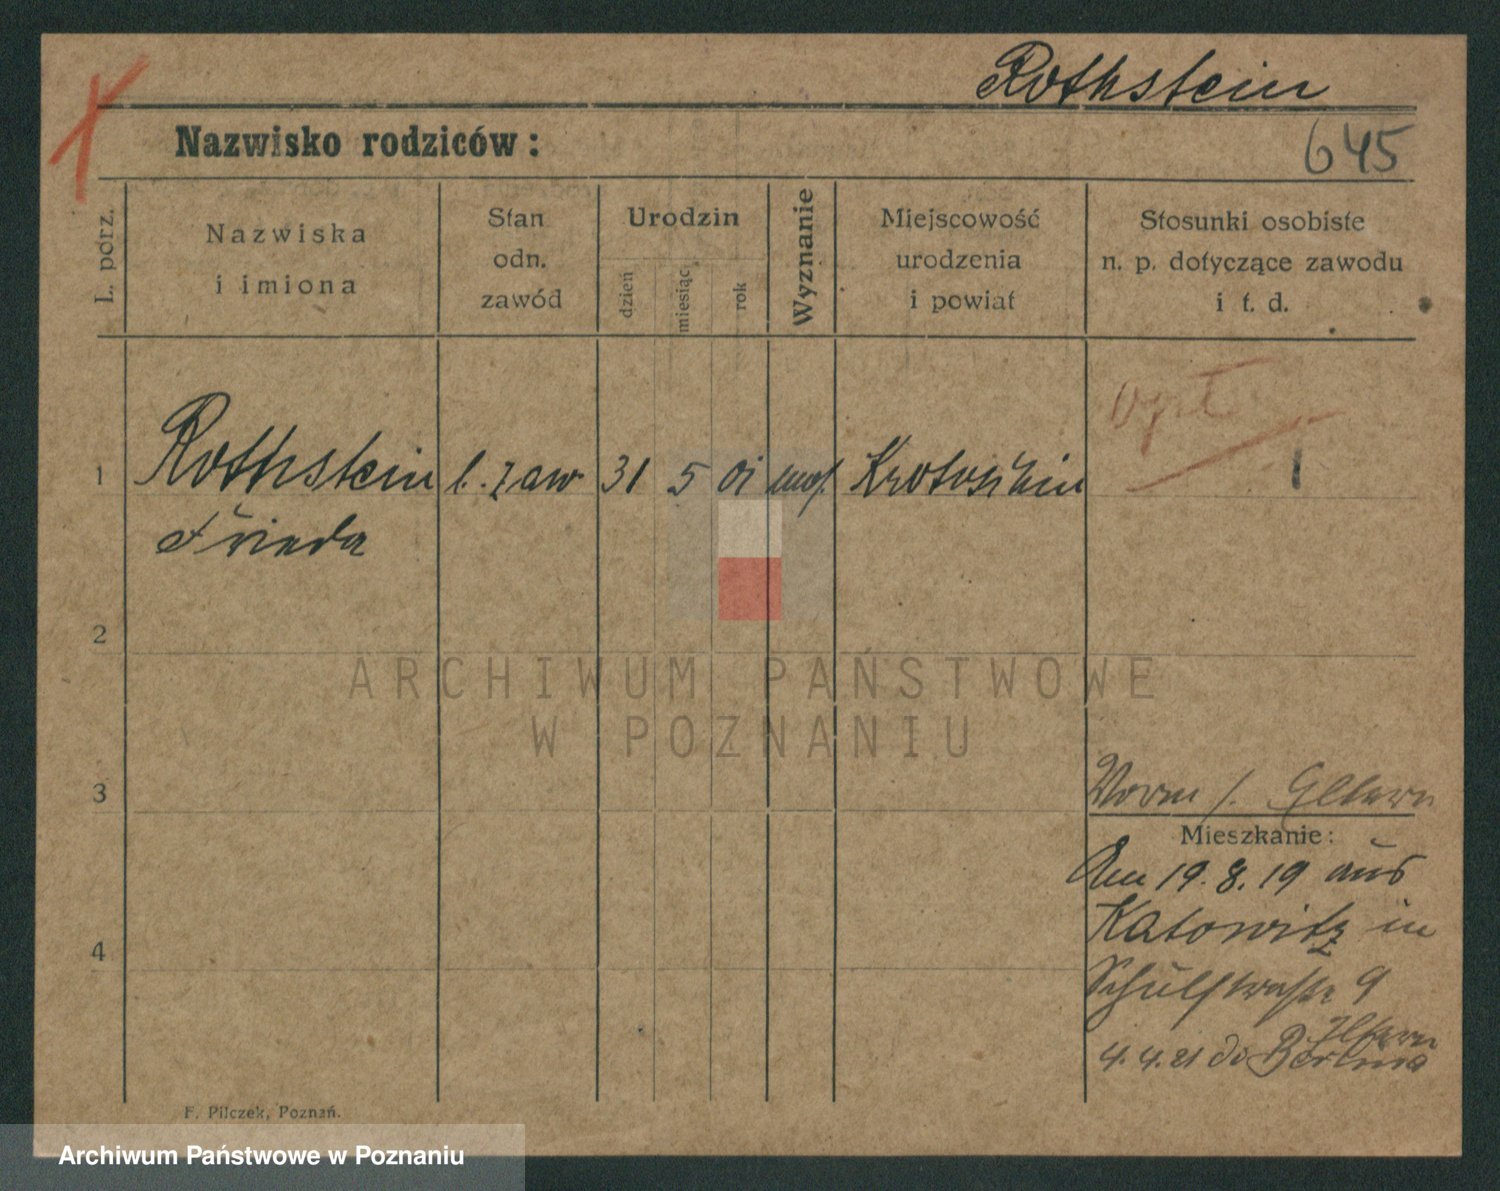 Rothstein
Nazwisko rodziców:
645
L. porz.
Nazwiska
i imiona
Stan
odn.
zawód
Urodzin
dzień
miesiąc
rok
Wyznanie
Miejscowość
urodzenia
i powiat
Stosunki osobiste
n. p. dotyczące zawodu
i t. d.
1
Rothstein
Frieda
b. zaw
31
5
01
mos.
Krotoschin
Opt
2
ARCHIWUM PAŃSTWOWE
W POZNANIU
3
Eltern
Mieszkanie:
Am 19.8.19 aus
Katowitz in
Schulstraße 9
Eltern
4.4.21 do Berlina
4
F. Pilczek, Poznań.
Archiwum Państwowe w Poznaniu